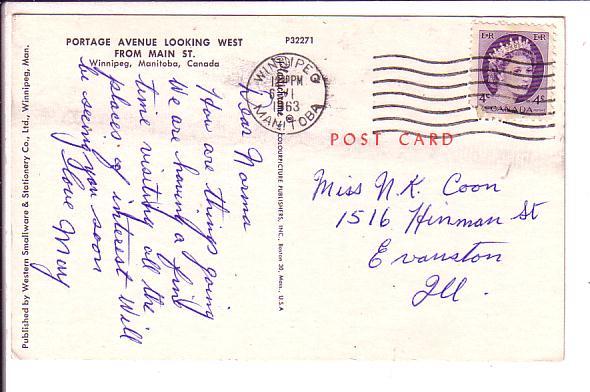 PORTAGE AVENUE LOOKING WEST
FROM MAIN ST.
Winnipeg, Manitoba, Canada
P32271
Dear Norma
How are things going
We are having a fine
time visiting all the
places of interest Will
be seeing you soon
Love May
Published by Western Smallware & Stationery Co., Ltd., Winnipeg, Man.
PUBLISHERS, INC., Boston 30, Mass., U.S.A
WINNIPEG
PM
1963
MANITOBA
E II R E II R
4¢ CANADA 4¢
POST CARD
Miss N.K. Coon
1516 Hinman St
Evanston
Ill.